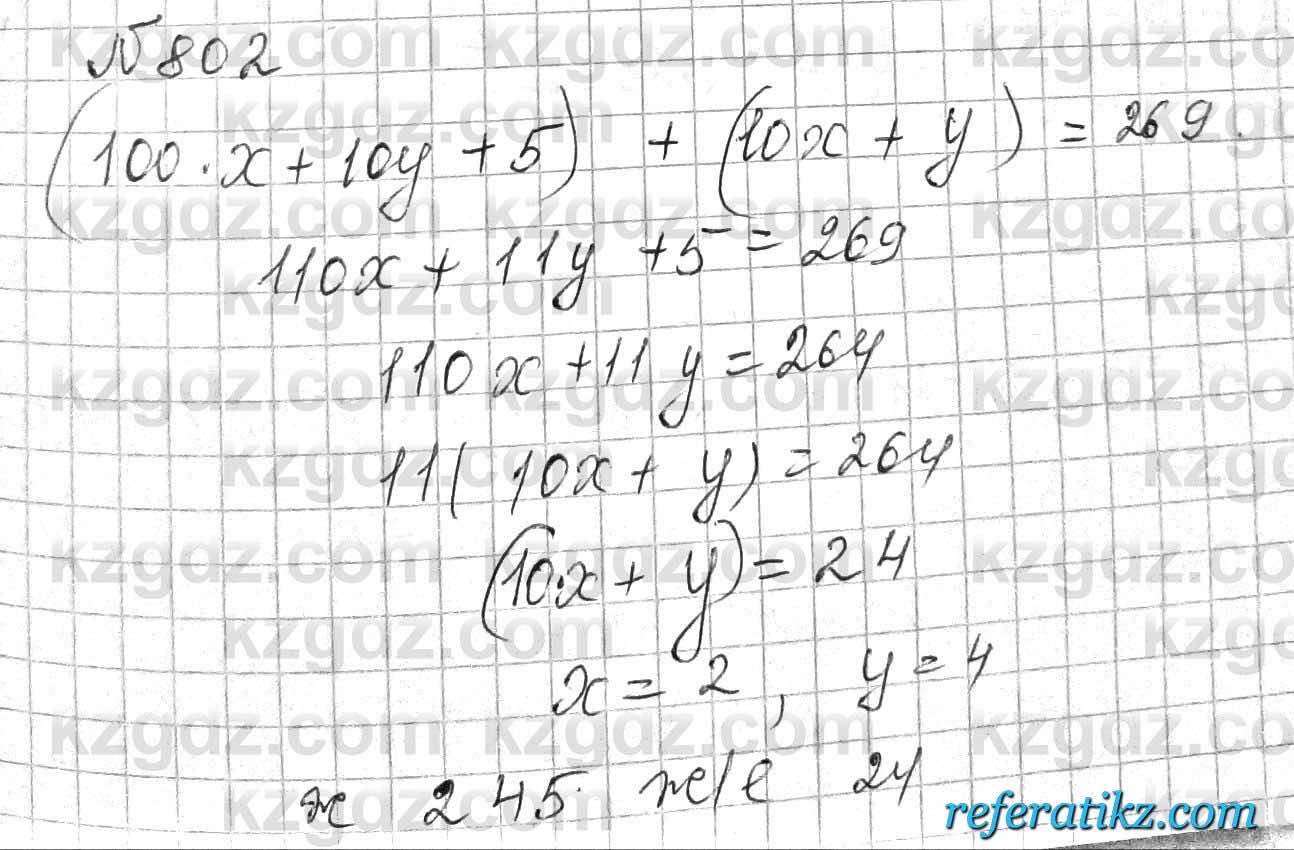 №802
(100·x + 10y + 5) + (10x + y) = 269.
110x + 11y + 5 = 269
110x + 11y = 264
11(10x + y) = 264
(10·x + y) = 24
x = 2, y = 4
ж 245 ж/е 24
referatikz.com